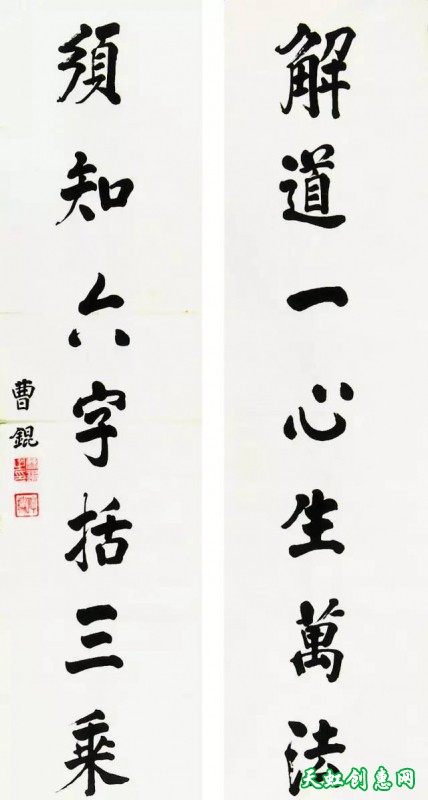 解道一心生萬法
須知六字括三乘
曹錕
天虹创惠网